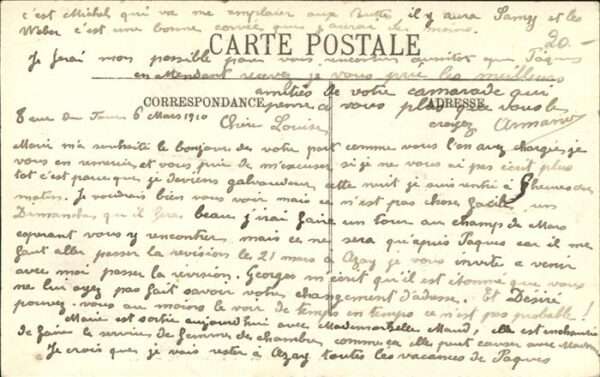 c'est Michel qui va me remplacer aux Buttes il y aura Samy et les
Weber c'est une bonne corvée que j'aurai de moins.
20-
CARTE POSTALE
Je ferai mon possible pour vous rencontrer aussitôt que Pâques
en attendant recevez je vous prie les meilleures
amitiés de votre camarade qui
pense à vous plus que vous le
croyez Armand
CORRESPONDANCE
ADRESSE
6 Mars 1910
Chère Louise
Marie m'a souhaité le bonjour de votre part comme vous l'en avez chargée, je
vous en remercie et vous prie de m'excuser si je ne vous ai pas écrit plus
tot c'est parce que je deviens galvaudeur, cette nuit je suis rentré à heures du
matin. Je voudrais bien vous voir mais ce n'est pas chose facile un
Dimanche qu'il fera beau j'irai faire un tour au champs de Mars
esperant vous y rencontrer mais ce ne sera qu'après Pâques car il me
faut aller passer la revision le 21 mars à Azay je vous invite a venir
avec moi passer la revision. Georges m'écrit qu'il est étonné que vous
ne lui ayez pas fait savoir votre changement d'adresse. Et Désiré
pouvez-vous au moins le voir de temps en temps ce n'est pas probable!
Marie est sortie aujourd'hui avec Mademoiselle Maud, elle est enchantée
de faire le service de femme de chambre, comme ça elle peut causer avec
Je crois que je vais rester à Azay toutes les vacances de Pâques